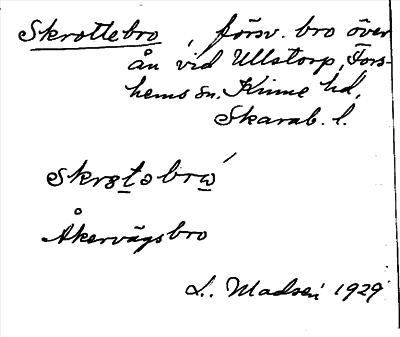 Skrottebro, försv. bro över
ån vid Ullstorp, Fors-
hems sn. Kinne hd,
Skarab. l.
Skrstəbrω´
Åkervägsbro
L. Madsen 1929